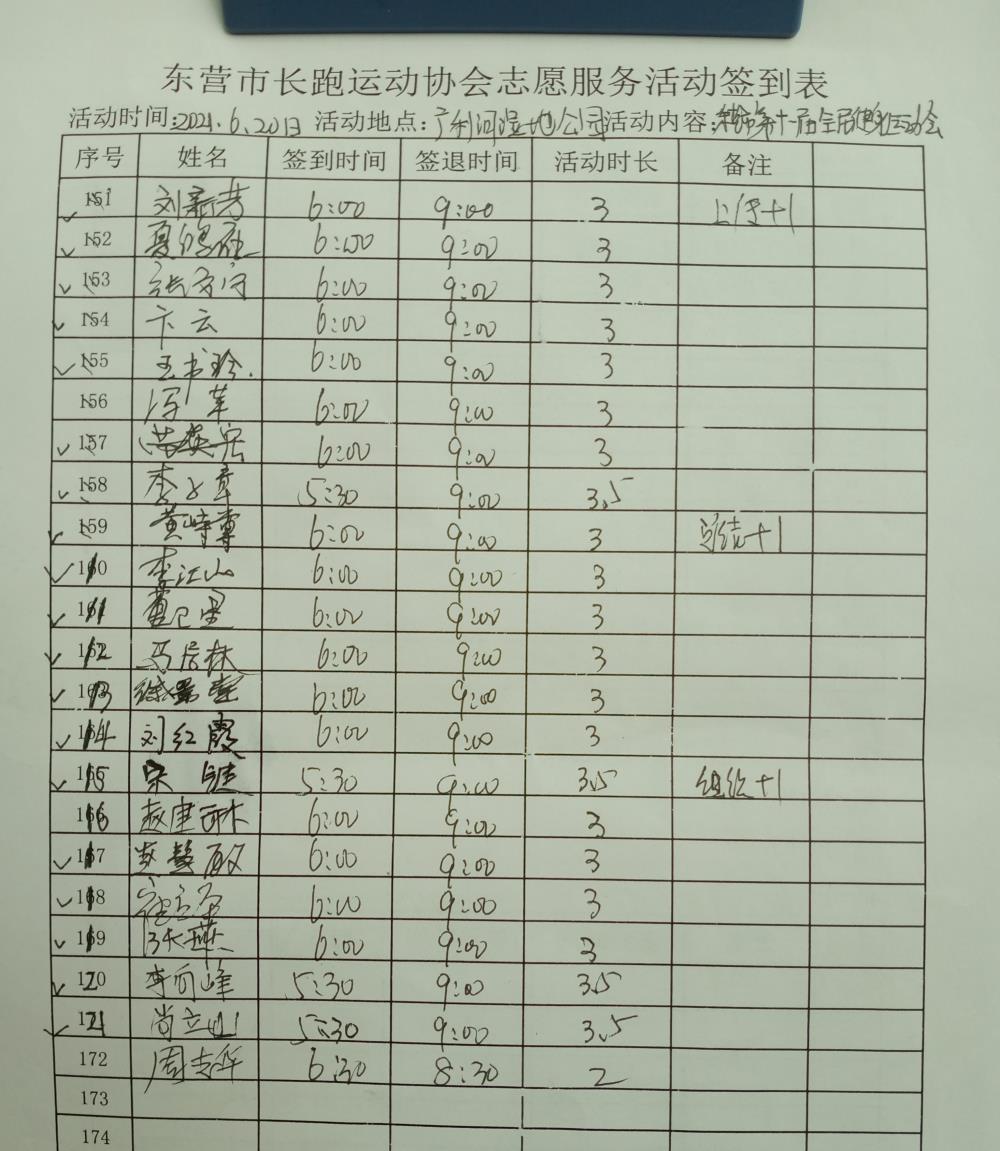 东营市长跑运动协会志愿服务活动签到表
活动时间:2021.6.20日 活动地点:广利河湿地公司 活动内容:第十一届全民健身运动会
序号 姓名 签到时间 签退时间 活动时长 备注
151 刘新芳 6:00 9:00 3 上传+1
152 6:00 9:00 3
153 6:00 9:00 3
154 卞云 6:00 9:00 3
155 王书玲. 6:00 9:00 3
156 冯苹 6:00 9:00 3
157 6:00 9:00 3
158 李文章 5:30 9:00 3.5
159 黄峙尊 6:00 9:00 3 总结+1
160 李江山 6:00 9:00 3
161 6:00 9:00 3
162 马居林 6:00 9:00 3
163 6:00 9:00 3
164 刘红霞 6:00 9:00 3
165 宋 5:30 9:00 3.5 组织+1
166 赵建 6:00 9:00 3
167 6:00 9:00 3
168 6:00 9:00 3
169 张燕 6:00 9:00 3
170 李向峰 5:30 9:00 3.5
171 尚立山 5:30 9:00 3.5
172 周志华 6:30 8:30 2
173
174